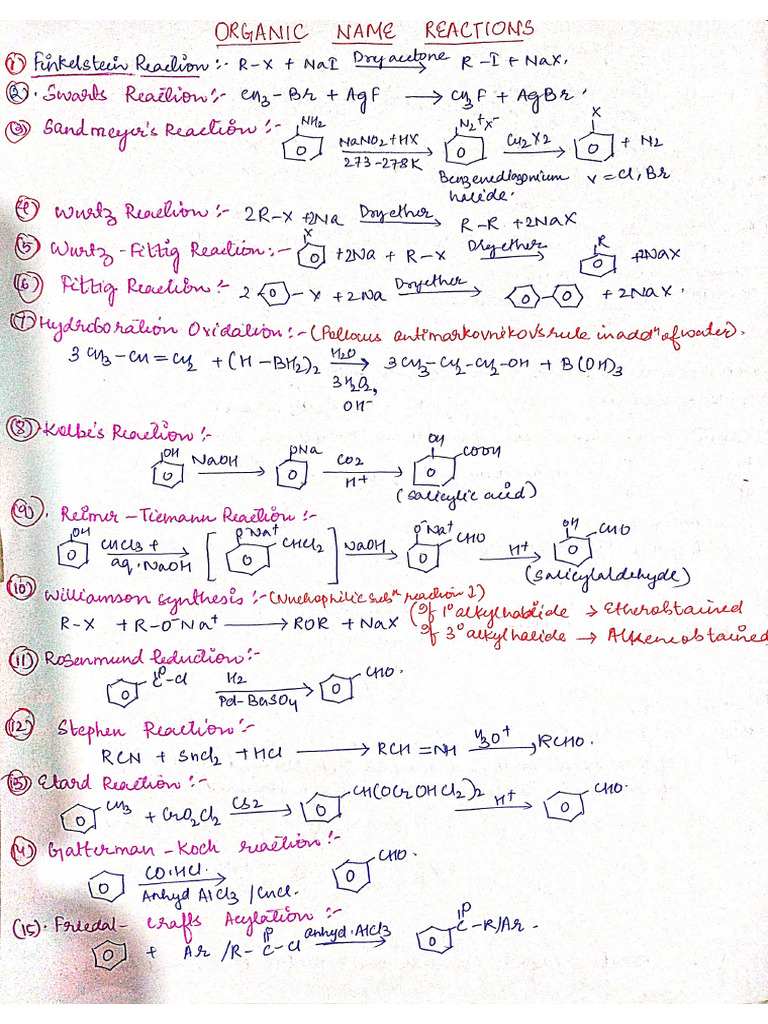 ORGANIC NAME REACTIONS
(1) Finkelstein Reaction:- R-X + NaI Dry acetone → R-I + NaX.
(2). Swarts Reaction:- CH3-Br + AgF → CH3F + AgBr.
(3) Sandmeyer's Reaction:- NH2 NaNO2+HX 273-278K → N2+X- Cu2X2 → X + N2
Benzenediazonium halide. X=Cl, Br
(4) Wurtz Reaction:- 2R-X +2Na Dry ether → R-R +2NaX
(5) Wurtz-Fittig Reaction:- X +2Na + R-X Dry ether → R +2NaX
(6) Fittig Reaction:- 2 -X +2Na Dry ether → + 2NaX.
(7) Hydroboration Oxidation:- (Follows antimarkovnikov's rule in addn of water).
3 CH3-CH=CH2 + (H-BH2)2 H2O → 3H2O2, OH- 3 CH3-CH2-CH2-OH + B(OH)3
(8). Kolbe's Reaction:-
OH NaOH → ONa CO2 → H+ OH COOH
(Salicylic acid)
(9). Reimer-Tiemann Reaction:-
OH CHCl3 + aq. NaOH → [O-Na+ CHCl2] NaOH → O-Na+ CHO H+ → OH CHO
(Salicylaldehyde)
(10) Williamson synthesis:- (Nucleophilic subn reaction 2)
R-X + R-O-Na+ → ROR + NaX (If 1° alkyl halide → Ether obtained
If 3° alkyl halide → Alkene obtained
(11) Rosenmund Reduction:-
O C-Cl H2 Pd-BaSO4 → CHO.
(12) Stephen Reaction:-
RCN + SnCl2 + HCl → RCH=NH H3O+ → RCHO.
(13) Etard Reaction:-
CH3 + CrO2Cl2 CS2 → CH(OCrOHCl2)2 H+ → CHO.
(14) Gatterman-Koch reaction:-
CO.HCl. Anhyd AlCl3/CuCl. → CHO.
(15). Friedal-crafts Acylation:-
+ Ar/R-C-Cl O anhyd. AlCl3 → O C-R/Ar.